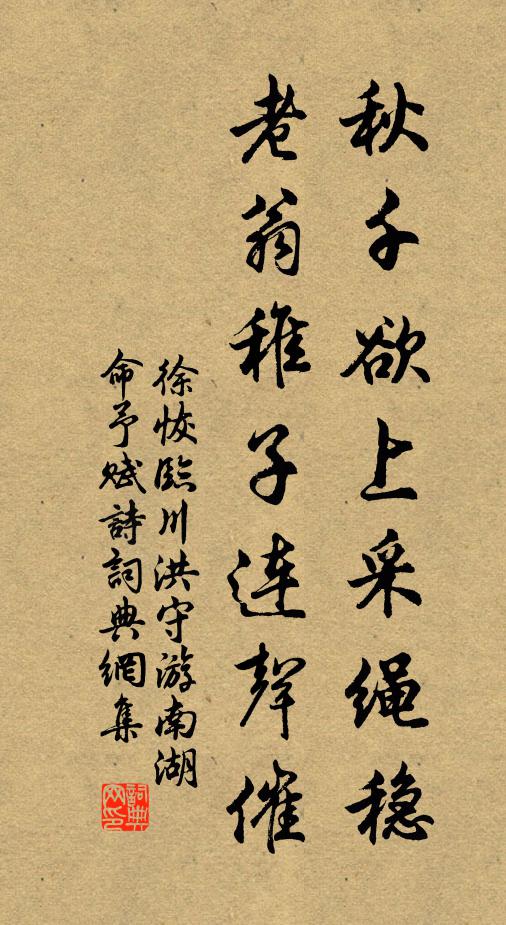 秋千欲上采绳稳
老翁稚子連聲催
徐恢臨川洪守游南湖
命予賦詩詞典網集
詞典
网印